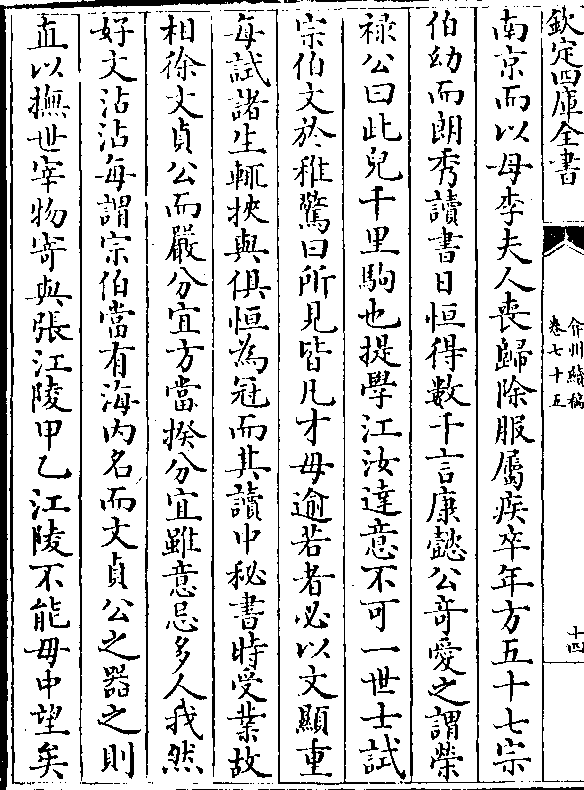 欽定四庫全書
弇州續稿
卷七十五
十四
南京而以母李夫人喪歸除服屬疾卒年方五十七宗
伯幼而朗秀讀書日恒得數千言康懿公奇愛之謂榮
祿公曰此兒千里駒也提學江汝達意不可一世士試
宗伯文於稚驚曰所見皆凡才毋逾若者必以文顯重
每試諸生輒挾與俱恒為冠而其讀中秘書時受業故
相徐文貞公而嚴分宜方當揆分宜雖意忌多人我然
好文沾沾每謂宗伯當有海内名而文貞公之器之則
直以撫世宰物寄與張江陵甲乙江陵不能毋中望矣